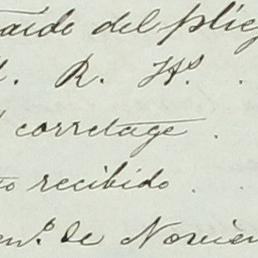 del plieg
R. Hs.
corretage .
recibido .
de Noviem